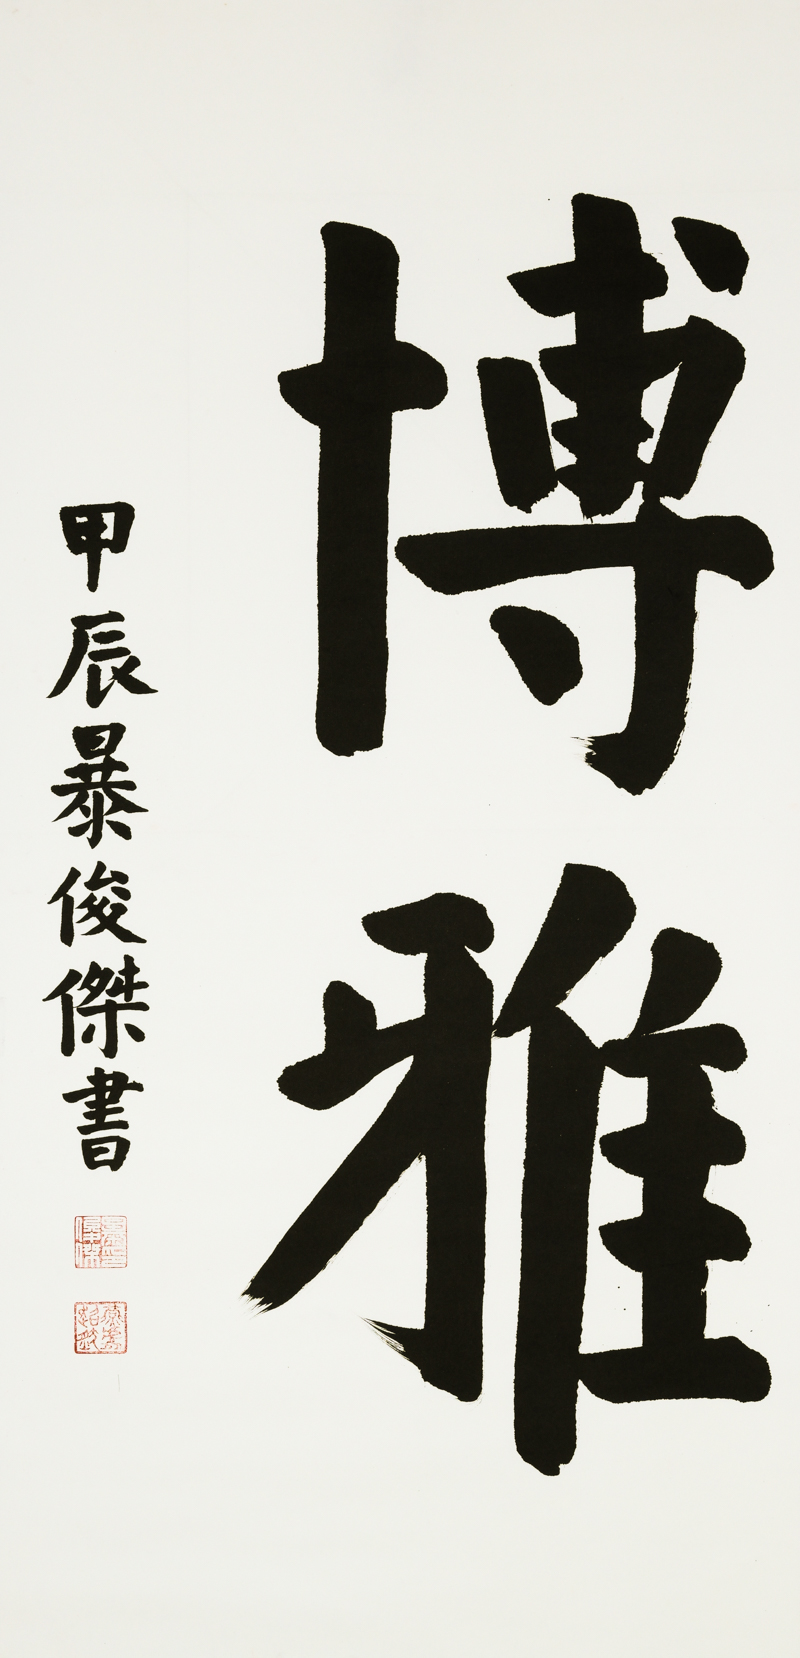 博雅
甲辰暴俊傑書